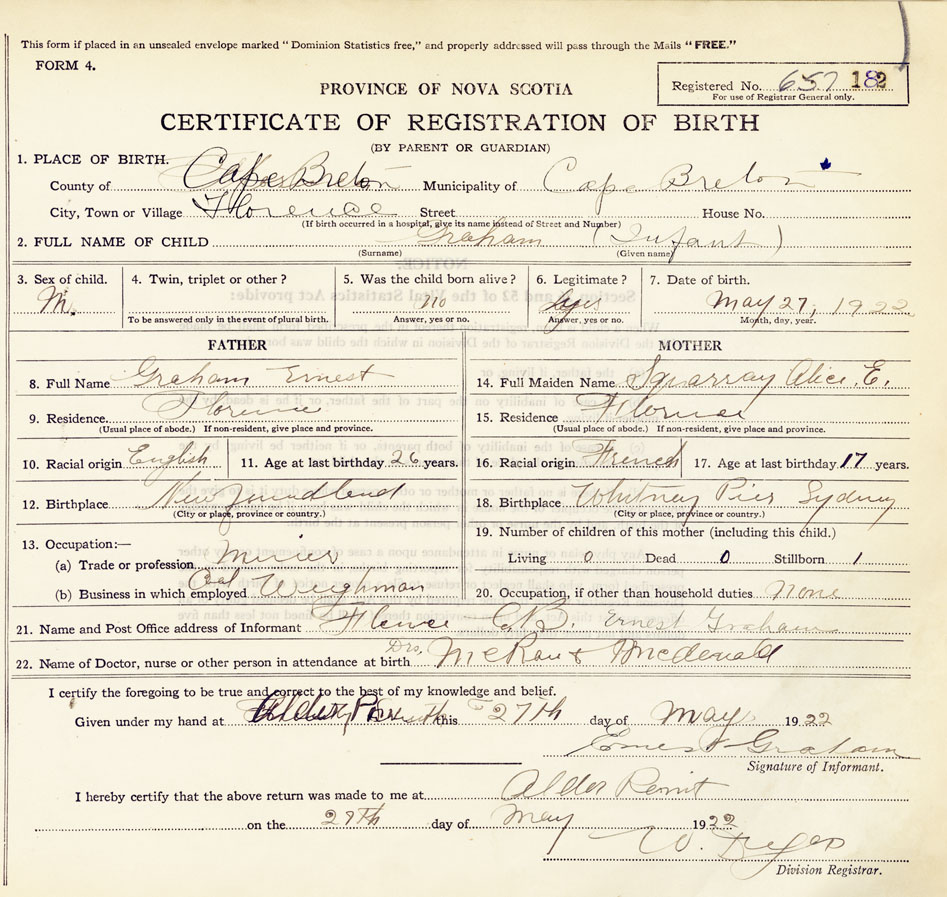 This form if placed in an unsealed envelope marked "Dominion Statistics free," and properly addressed will pass through the Mails "FREE."
FORM 4.
Registered No. 657 182
For use of Registrar General only.
PROVINCE OF NOVA SCOTIA
CERTIFICATE OF REGISTRATION OF BIRTH
(BY PARENT OR GUARDIAN)
1. PLACE OF BIRTH.
County of Cape Breton Municipality of Cape Breton
City, Town or Village Florence Street House No.
(If birth occurred in a hospital, give its name instead of Street and Number)
2. FULL NAME OF CHILD Graham (Infant)
(Surname) (Given name)
3. Sex of child. 4. Twin, triplet or other? 5. Was the child born alive? 6. Legitimate? 7. Date of birth.
M. no yes May 27, 1922
To be answered only in the event of plural birth. Answer, yes or no. Answer, yes or no. Month, day, year.
FATHER MOTHER
8. Full Name Graham Ernest 14. Full Maiden Name Alice. E.
9. Residence. Florence 15. Residence Florence
(Usual place of abode.) If non-resident, give place and province. (Usual place of abode.) If non-resident, give place and province.
10. Racial origin English 11. Age at last birthday 26 years. 16. Racial origin French 17. Age at last birthday 17 years.
12. Birthplace New Foundland 18. Birthplace Whitney Pier Sydney
(City or place, province or country.) (City or place, province or country.)
13. Occupation:— 19. Number of children of this mother (including this child.)
(a) Trade or profession Miner Living 0 Dead 0 Stillborn 1
(b) Business in which employed Coal Weighman 20. Occupation, if other than household duties None
21. Name and Post Office address of Informant Florence C.B. Ernest Graham
22. Name of Doctor, nurse or other person in attendance at birth Drs. & McDonald
I certify the foregoing to be true and correct to the best of my knowledge and belief.
Given under my hand at this 27th day of May 1922
Ernest Graham
Signature of Informant.
I hereby certify that the above return was made to me at Alder Point
on the 29th day of May 1922
W.
Division Registrar.